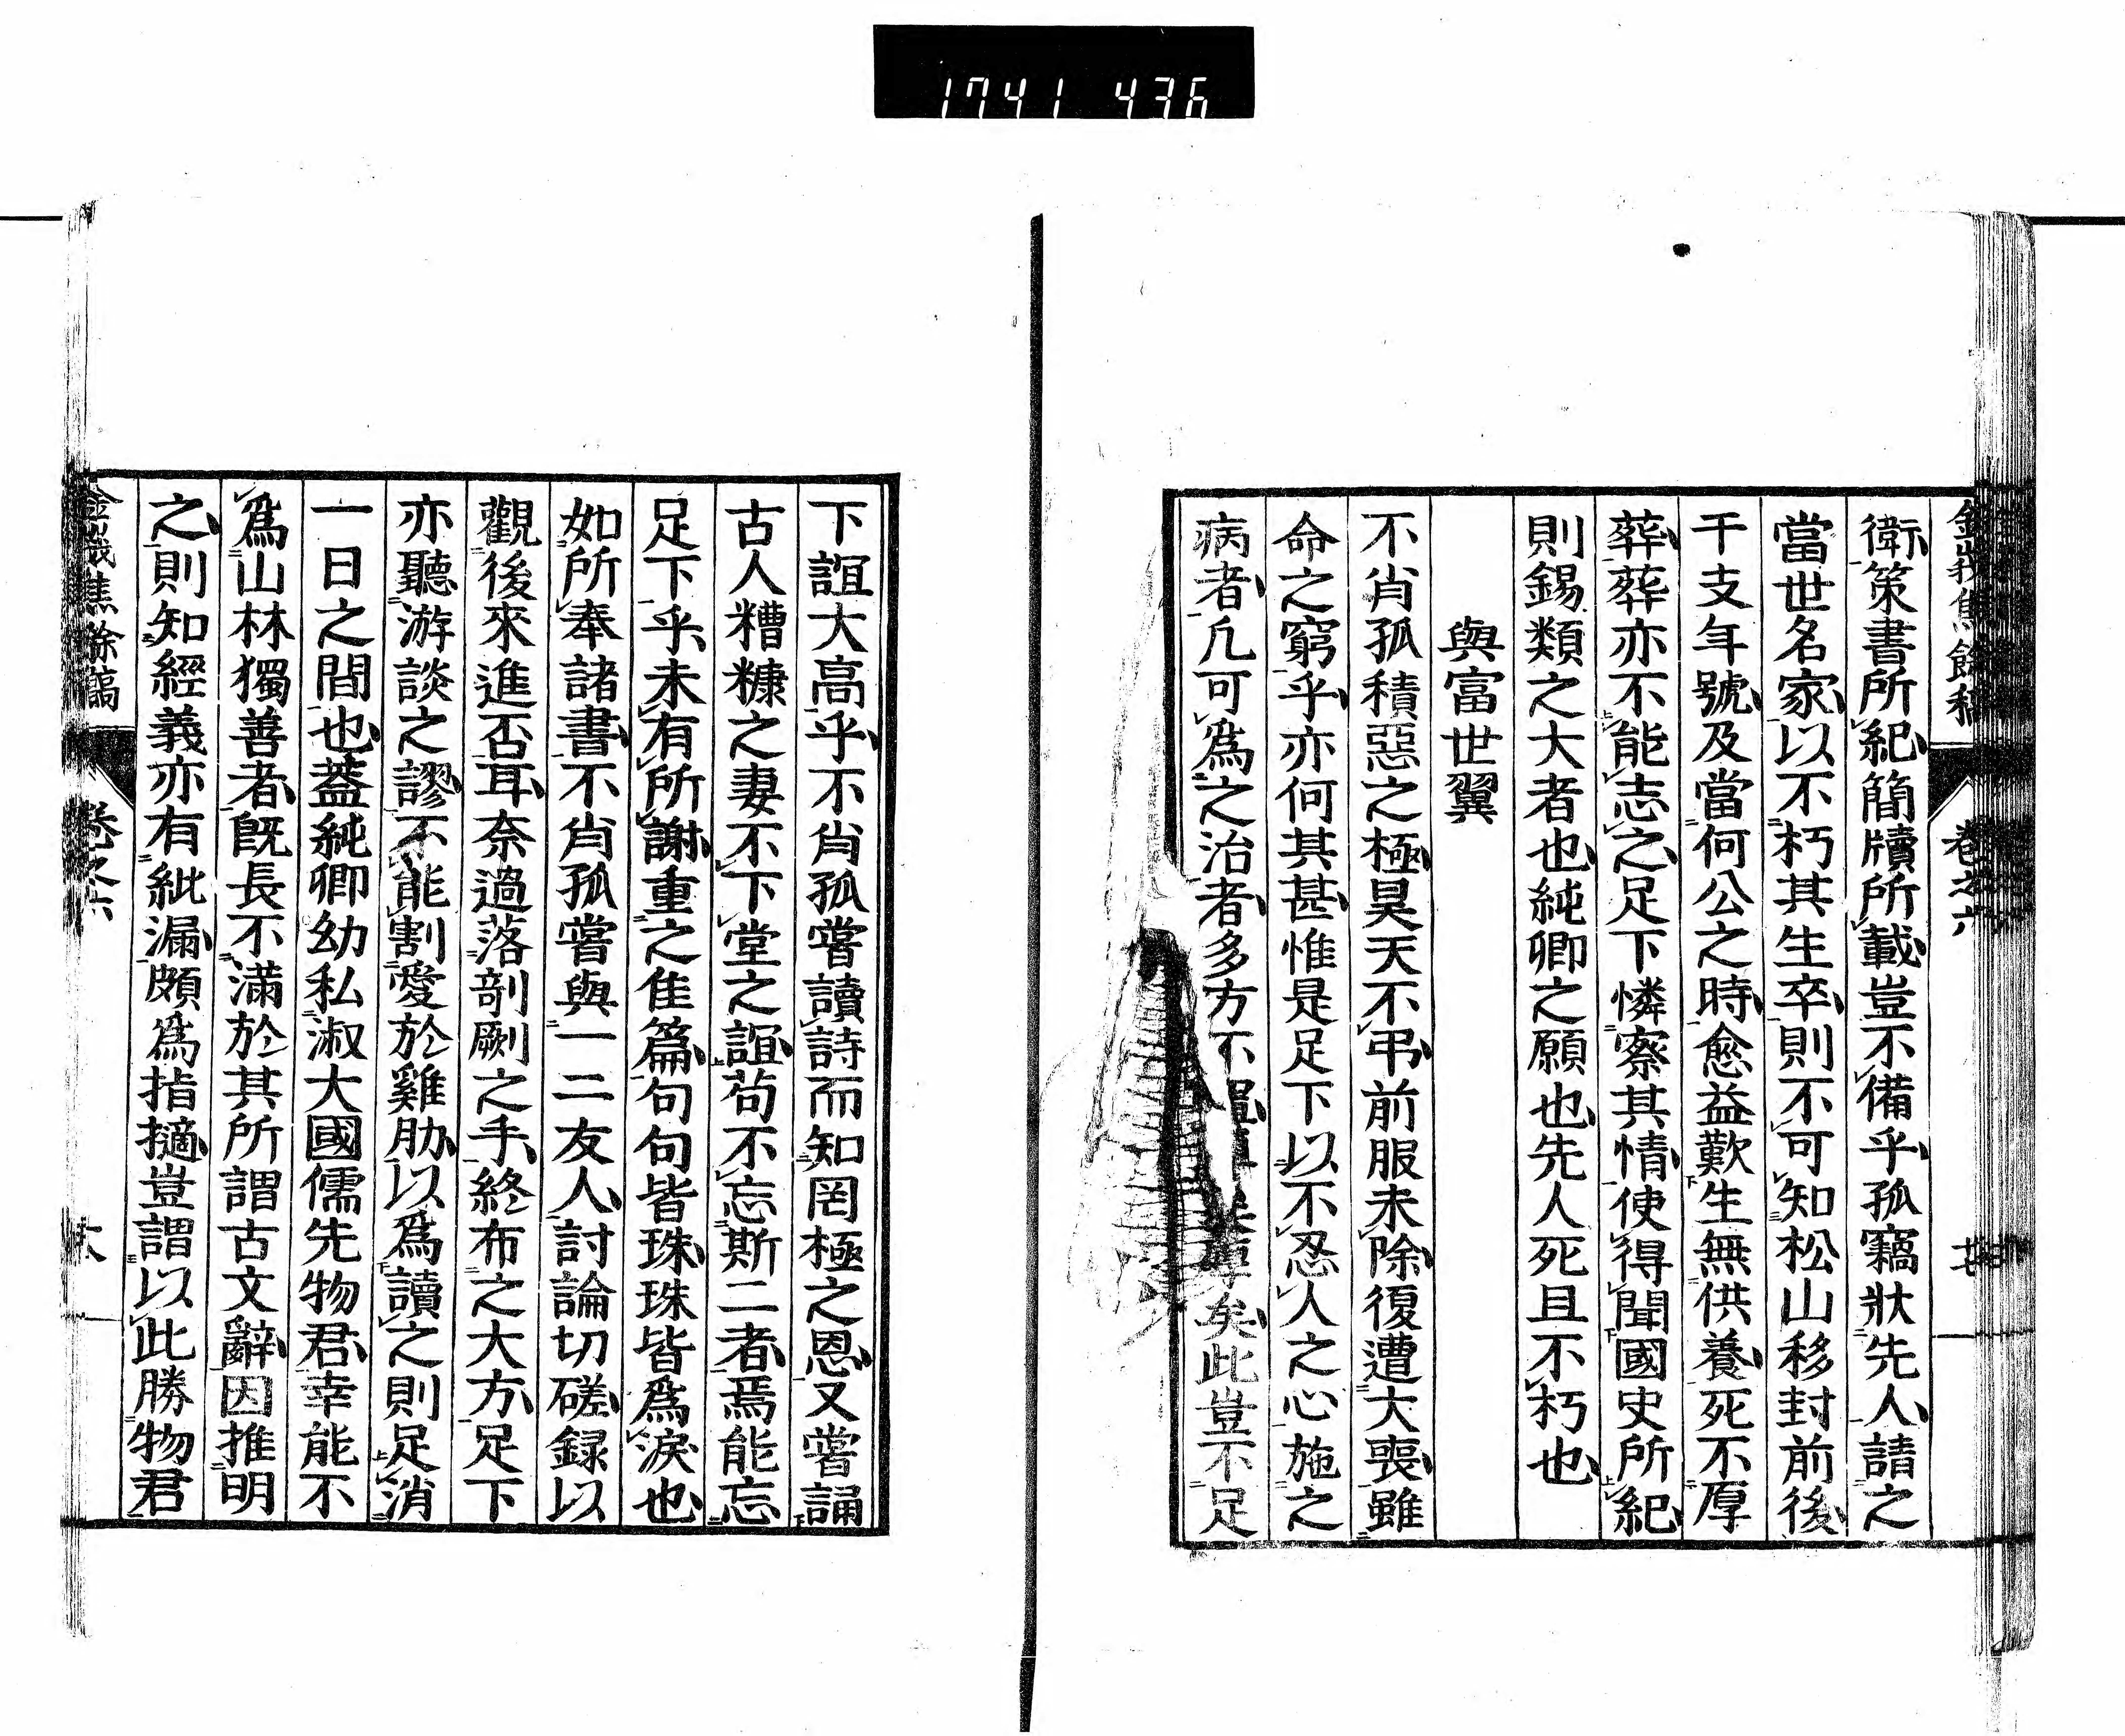 1741 436
金峩焦餘稿 卷之六
衛策書所紀簡牘所載豈不備乎孤竊狀先人請之
當世名家以不朽其生卒則不可知松山移封前後
干支年號及當何公之時愈益歎生無供養死不厚
葬葬亦不能志之足下憐察其情使得聞國史所紀
則錫類之大者也純卿之願也先人死且不朽也
與富世翼
不肖孤積惡之極昊天不弔前服未除復遭大喪雖
命之窮乎亦何其甚惟是足下以不忍人之心施之
病者凡可爲之治者多方不矣此豈不足
下誼大高乎不肖孤嘗讀詩而知罔極之恩又嘗誦
古人糟糠之妻不下堂之誼苟不忘斯二者焉能忘
足下乎未有所謝重之隹篇句句皆珠珠皆爲淚也
如所奉諸書不肖孤嘗與一二友人討論切磋録以
觀後來進否耳奈過落剞劂之手終布之大方足下
亦聽游談之謬不能割愛於雞肋以爲讀之則足消
一日之間也蓋純卿幼私淑大國儒先物君幸能不
爲山林獨善者既長不滿於其所謂古文辭因推明
之則知經義亦有紕漏頗爲指擿豈謂以此勝物君
金峩焦餘稿 卷之六